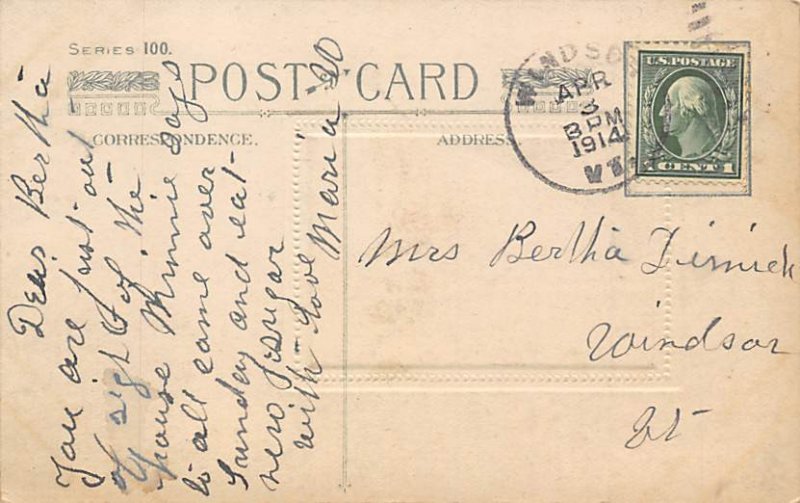 SERIES 100.
POST CARD
CORRESPONDENCE.
ADDRESS
WINDSO
APR
3
3 PM
1914
VT.
U.S. POSTAGE
1 CENT 1
Dear Bertha
You are just out
of sight of the
house Minnie says
to all come over
Sunday and eat
new sugar
with love Maria
Mrs Bertha Dimick
Windsor
Vt